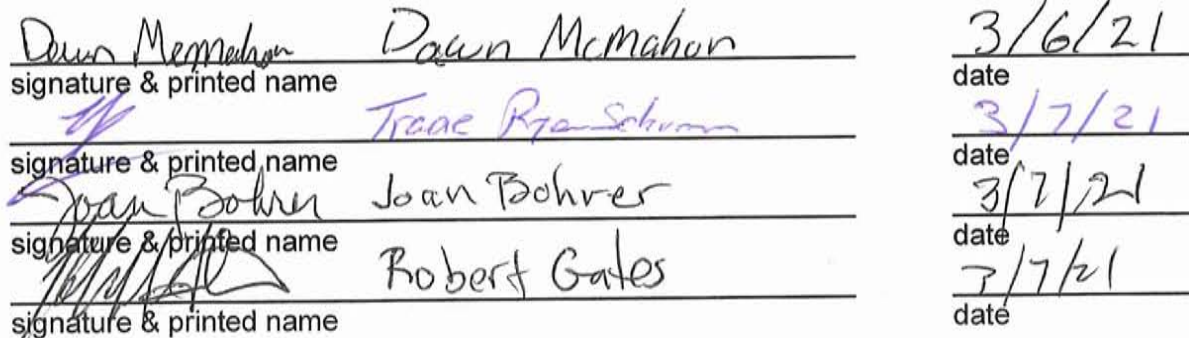 Dawn McMahon Dawn McMahon 3/6/21
signature & printed name date
3/7/21
signature & printed name date
Joan Bohrer Joan Bohrer 3/7/21
signature & printed name date
Robert Gates 3/7/21
signature & printed name date